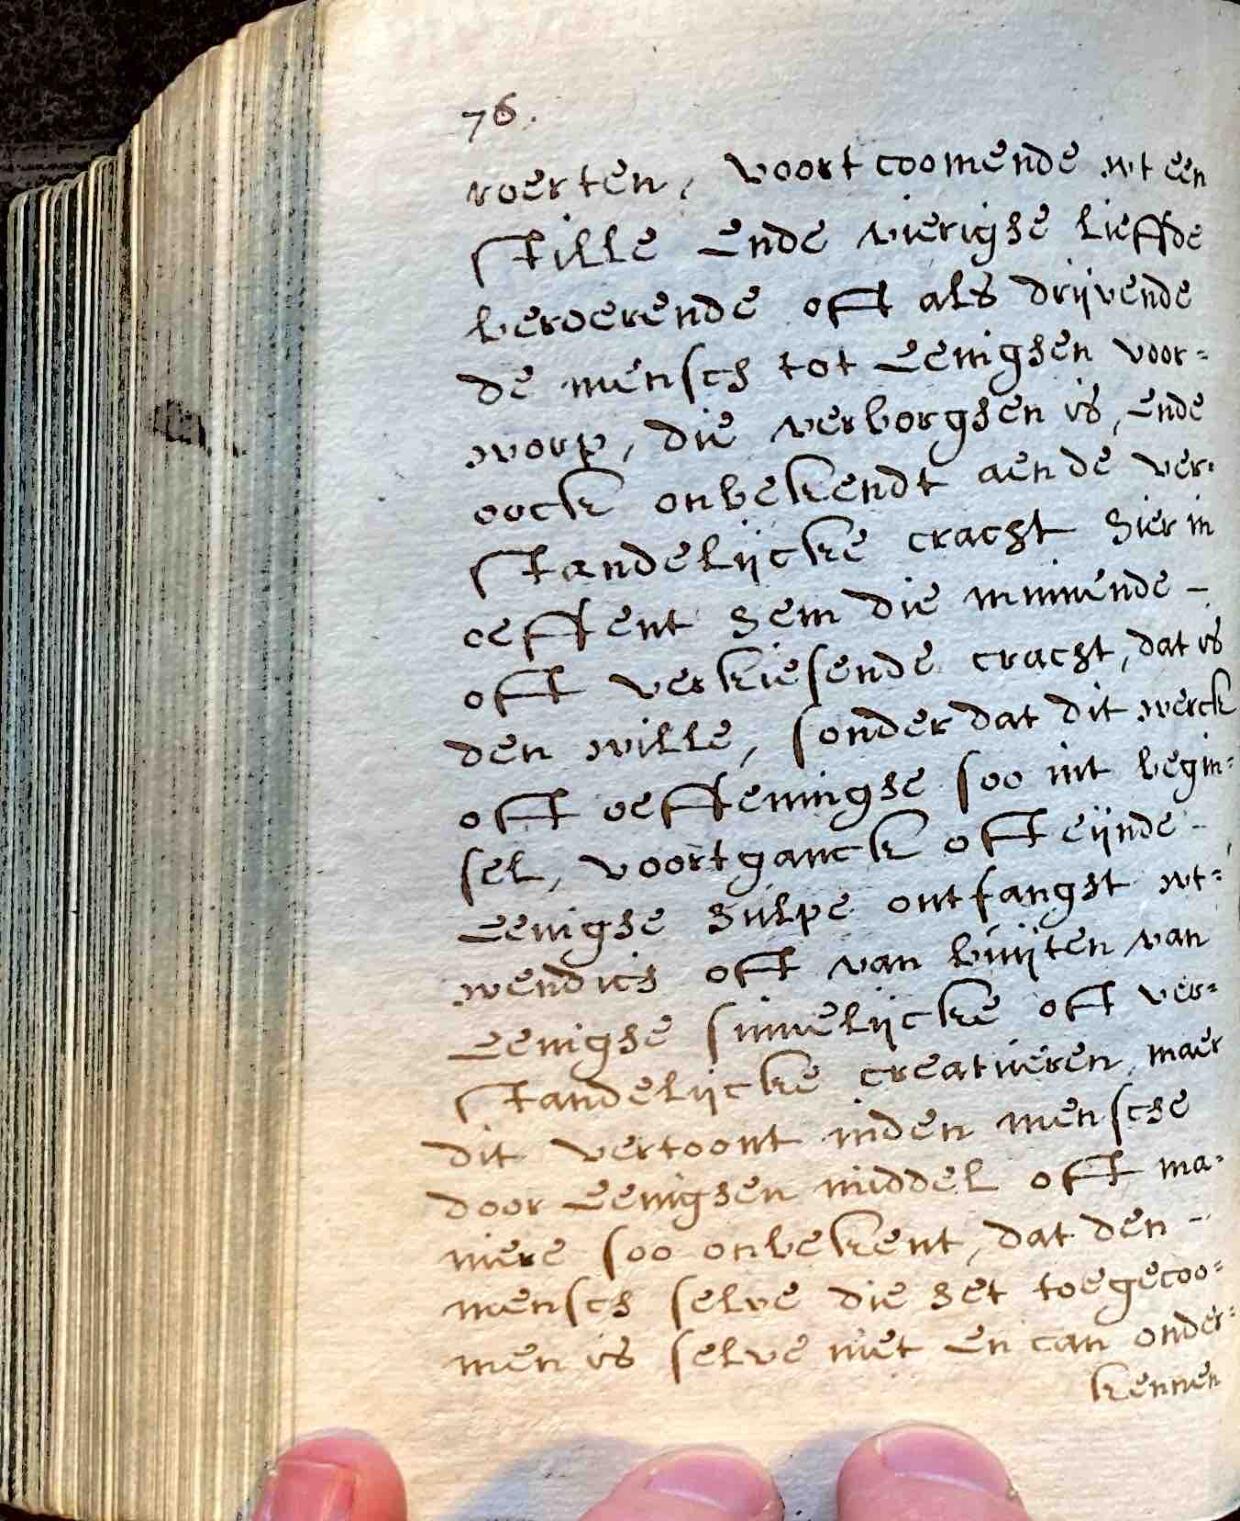 76.
roerten, voort coomende wt een
stille ende vierighe lieffde
beroerende oft als drijvende
de mensch tot eenighen voor=
worp, die verborghen is, ende
oock onbekendt aende ver=
standelijcke cracht hier in
oeffent hem die minnende -
oft verkiesende cracht, dat is
den wille, sonder dat dit werck
oft oeffeninghe soo int begin=
sel, voortganck oft eijnde -
eenighe hulpe ontfangst wt=
wendich oft van buijten van
eenighe sinnelijcke oft ver=
standelijcke creatueren, maer
dit vertoont inden mensche
door eenighen middel oft ma=
niere soo onbekent, dat den -
mensch selve die het toegecoo=
men is selve niet en can onder=
kennen